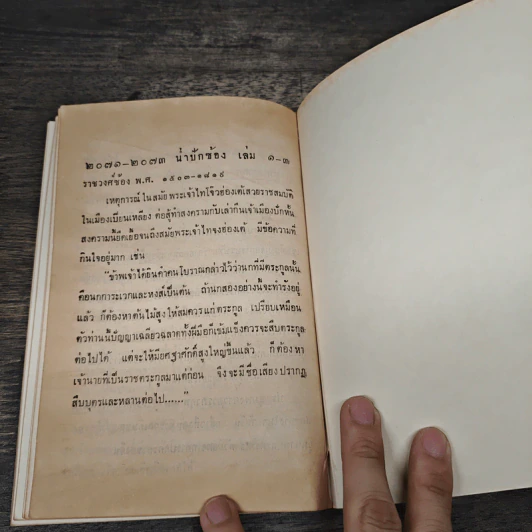 ๒๐๗๑-๒๐๗๓ น้ำปักซ้อง เล่ม ๑-๓
ราชวงศ์ซ้อง พ.ศ. ๑๕๐๓-๑๘๑๙
เหตุการณ์ในสมัยพระเจ้าไทโจ๊วฮ่องเต้เสวยราชสมบัติ
ในเมืองเปียนเหลียง ต่อสู้ทำสงครามกับเล่ากึนเจ้าเมืองปักฮั่น
สงครามนี้ยืดเยื้อจนถึงสมัยพระเจ้าไทจงฮ่องเต้ มีข้อความที่
กินใจอยู่มาก เช่น
"ข้าพเจ้าได้ยินคำคนโบราณกล่าวไว้ว่านกที่มีตระกูลนั้น
คือนกการะเวกและหงส์เป็นต้น ถ้านกสองอย่างนี้จะทำรังอยู่
แล้ว ก็ต้องหาต้นไม้สูงให้สมควรแก่ตระกูล เปรียบเหมือน
ตัวท่านนี้ปัญญาเฉลียวฉลาดทั้งฝีมือก็เข้มแข็งควรจะสืบตระกูล
ต่อไปได้ แต่จะให้มียศฐาศักดิ์สูงใหญ่ขึ้นแล้ว ก็ต้องหา
เจ้านายที่เป็นราชตระกูลมาแต่ก่อน จึงจะมีชื่อเสียงปรากฏ
สืบบุตรและหลานต่อไป......"